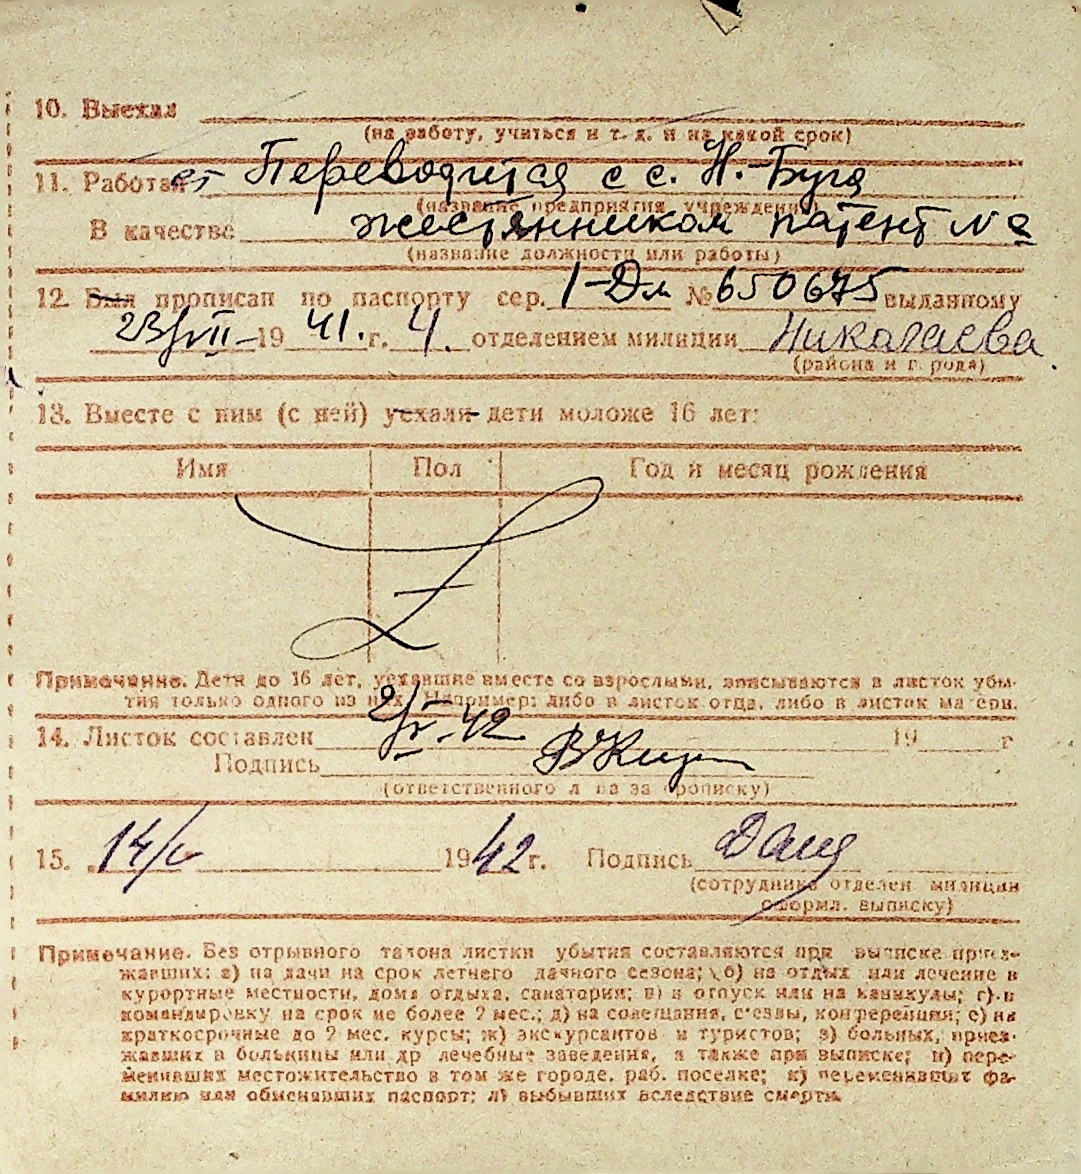 10. Выехал
(на работу, учиться и т. д. и на какой срок)
11. Работает Переводится с с. Н.-Буга
(название предприятия, учреждения)
В качестве жестянником патент №
(название должности или работы)
12. Был прописан по паспорту сер. 1-Дм № 650675 выданному
23/VII-1941. г. 4. отделением милиции Николаева
(района и города)
13. Вместе с ним (с ней) уехали дети моложе 16 лет:
Имя Пол Год и месяц рождения
Z
Примечание. Дети до 16 лет, уехавшие вместе со взрослыми, вписываются в листок убы-
тия только одного из них. Например: либо в листок отца, либо в листок матери.
14. Листок составлен 2/V-42 19 г
Подпись
(ответственного лица за прописку)
15. 14/ 1942 г. Подпись
(сотрудника отделен. милиции
оформл. выписку)
Примечание. Без отрывного талона листки убытия составляются при выписке приез-
жавших: а) на дачи на срок летнего дачного сезона; б) на отдых или лечение в
курортные местности, дома отдыха, санатории; в) в отпуск или на каникулы; г) в
командировку на срок не более 2 мес.; д) на совещания, с'езды, конференции; е) на
краткосрочные до 2 мес. курсы; ж) экскурсантов и туристов; з) больных, приез-
жавших в больницы или др лечебные заведения, а также при выписке; и) пере-
менивших местожительство в том же городе, раб. поселке; к) переменивших фа-
милию или обменявших паспорт; л) выбывших вследствие смерти.